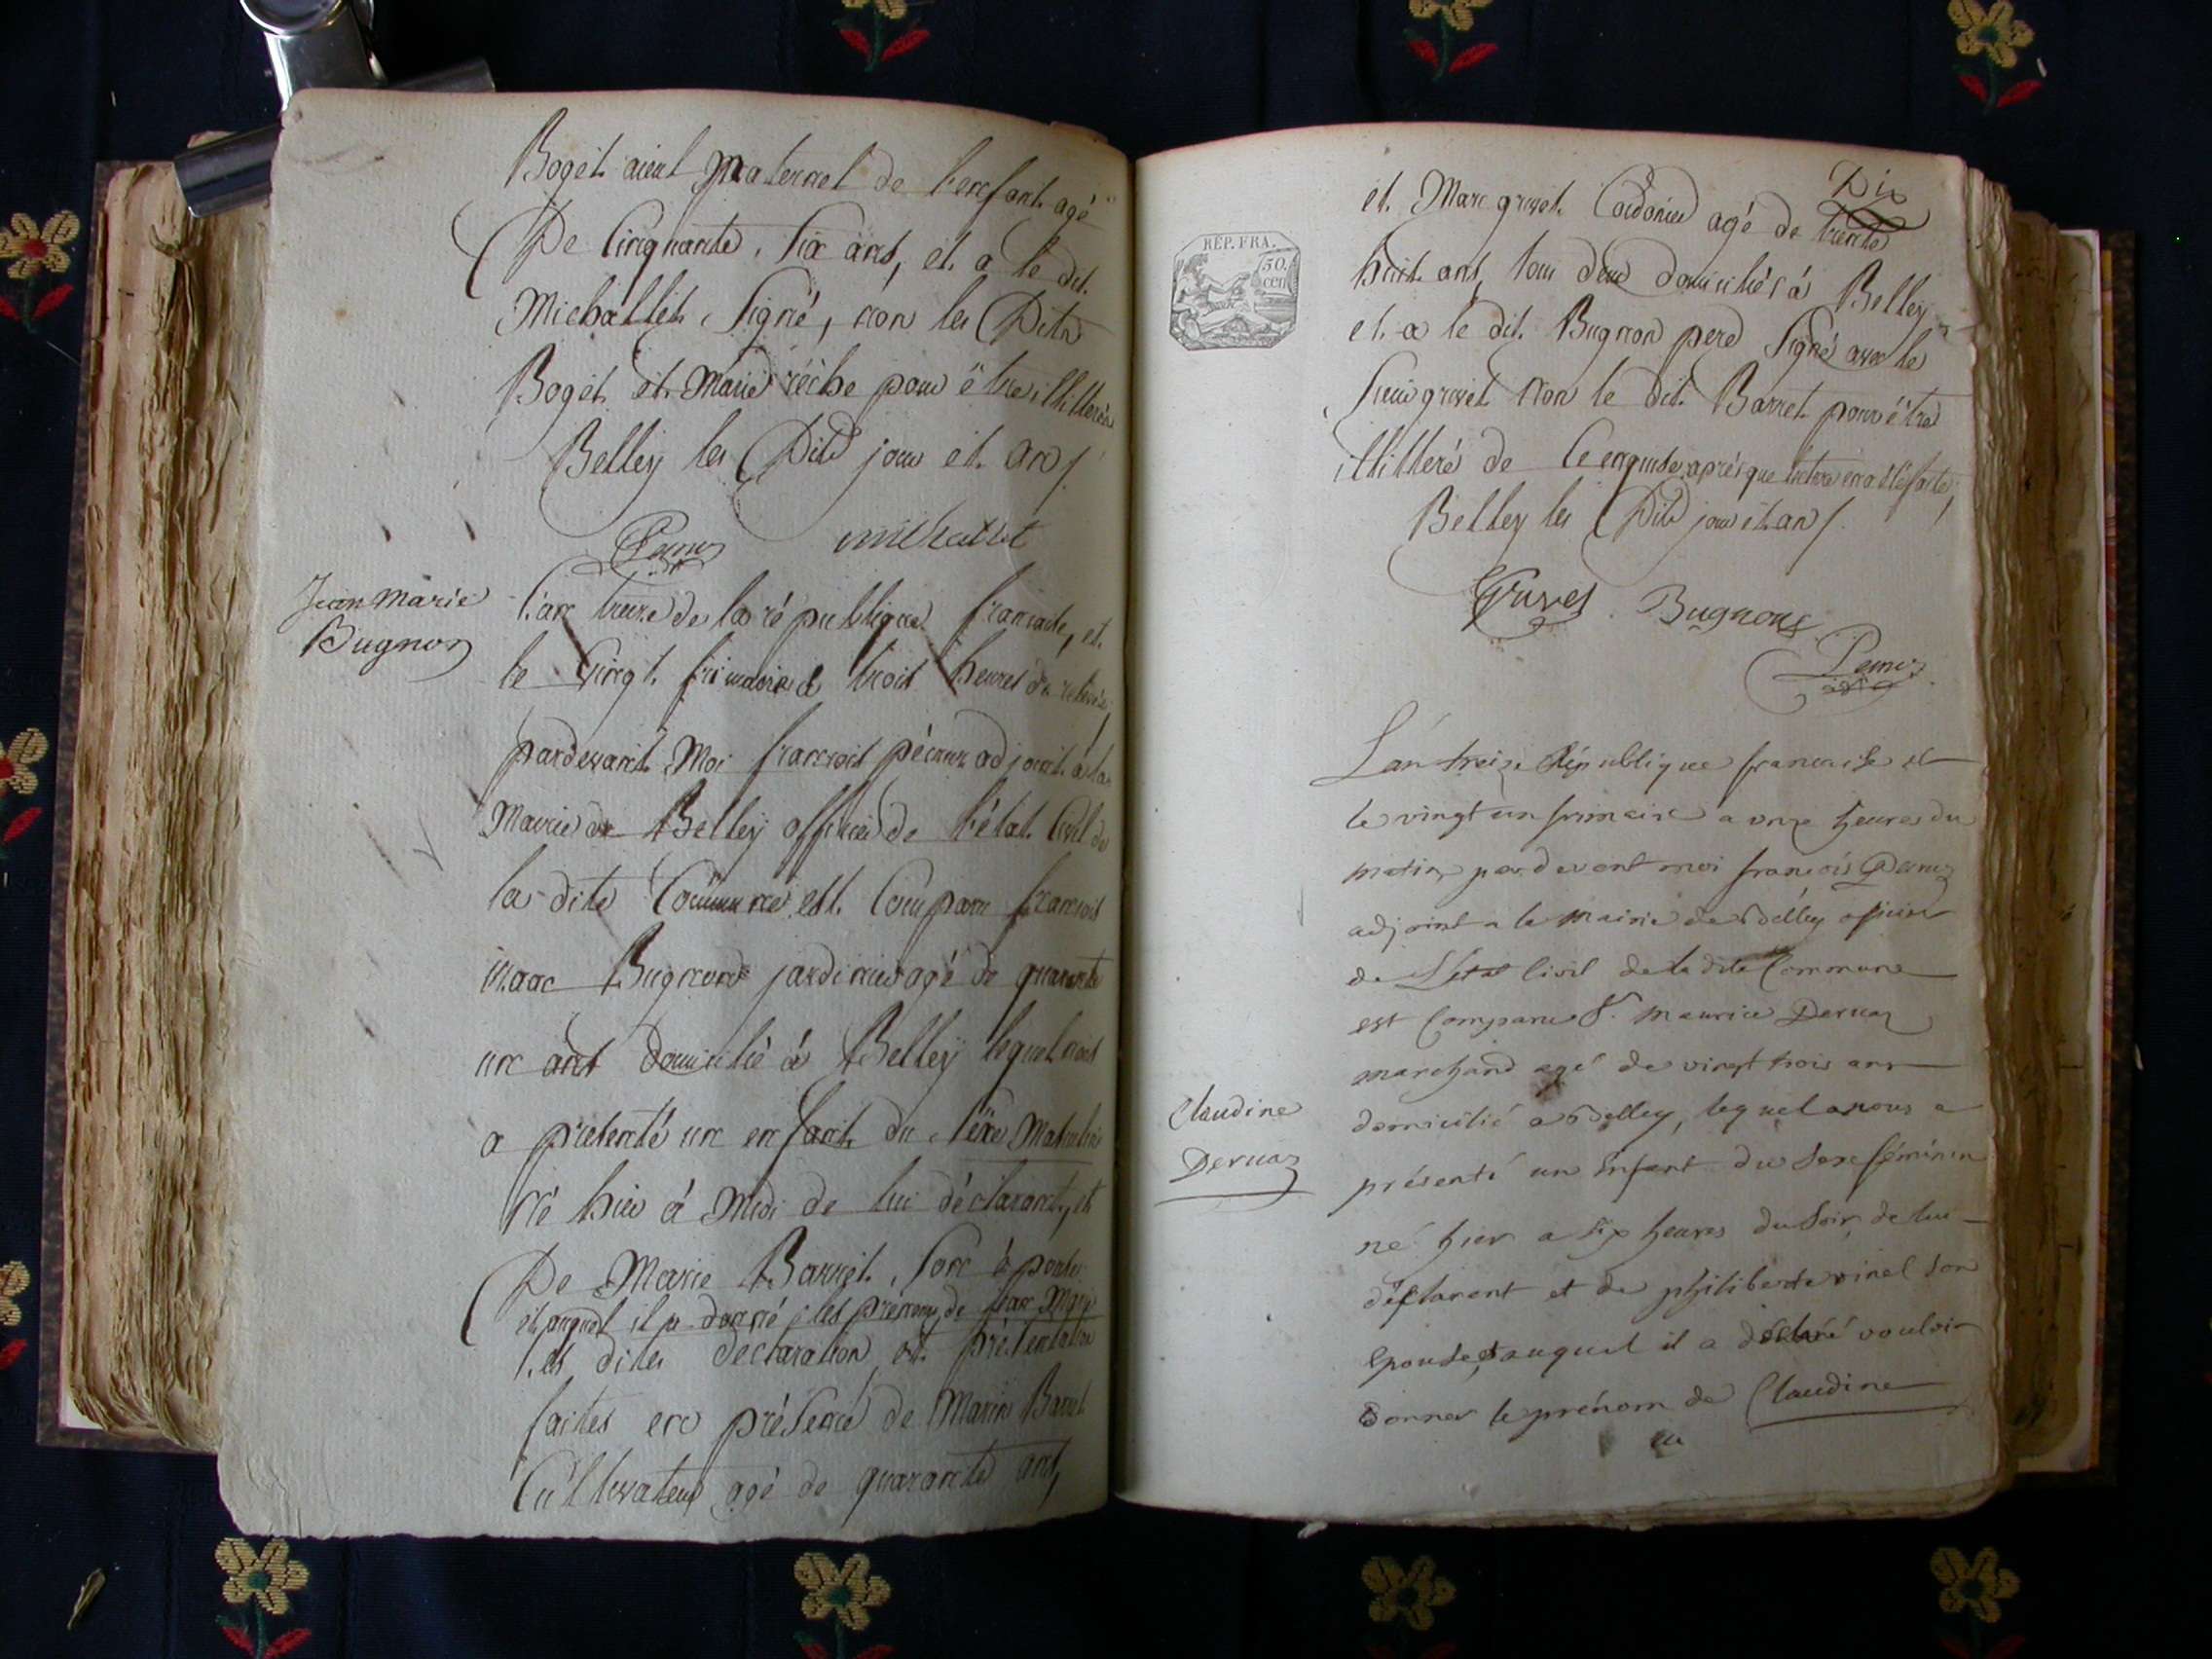 Boget aieul maternel de l'enfant agé
De Cinquante Six ans, et a le dit
Michallet Signé, non les Dits
Boget et Marie réche pour être illitterés
Belley les Dits jour et an /.
michallet
Jean marie
Bugnon
l'an treize de la république francaise, et
le vingt frimaire à trois heures de relevée,
pardevant Moi francois adjoint à la
Mairie de Belley officier de l'état Civil de
la dite Commune est Comparu francois
isaac Bugnond jardinier agé de quarante
un ans domicilié à Belley lequel nous
a presenté un enfant du sexe Masculin
Né hier à Midi de lui déclarant, et
De Marie Barret Son épouse
et auquel il a donné les prenoms de Jean Marie
les dites declaration et présentation
faites en présence de Marin Barret
Cultivateur agé de quarante ans,
Dix
et Marc grivet Cordonier agé de trente
huit ans, tous deux domiciliés à Belley
et a le dit Bugnon pere Signé avec le
Sieur grivet Non le dit Barret pour être
illitteré de Ce enquis après que lecture en a été faite,
Belley les Dits jour et an /.
RÉP. FRA.
50
cen
Grivet Bugnon
L'an treize République francaise et
le vingt un frimaire a onze heures du
matin, pardevant moi françois
adjoint a la Mairie de Belley officier
de L'état Civil de la dite Commune
est Comparu S.r Maurice Dervaz
marchand agé de vingt trois ans
domicilié a Belley, lequel a nous a
Claudine
Dervaz
présenté un Enfant du Sexe féminin
né hier a Six heures du Soir, de lui
déclarant et de philiberte vinel son
Epouse, et auquel il a déclaré vouloir
donner le prénom de Claudine